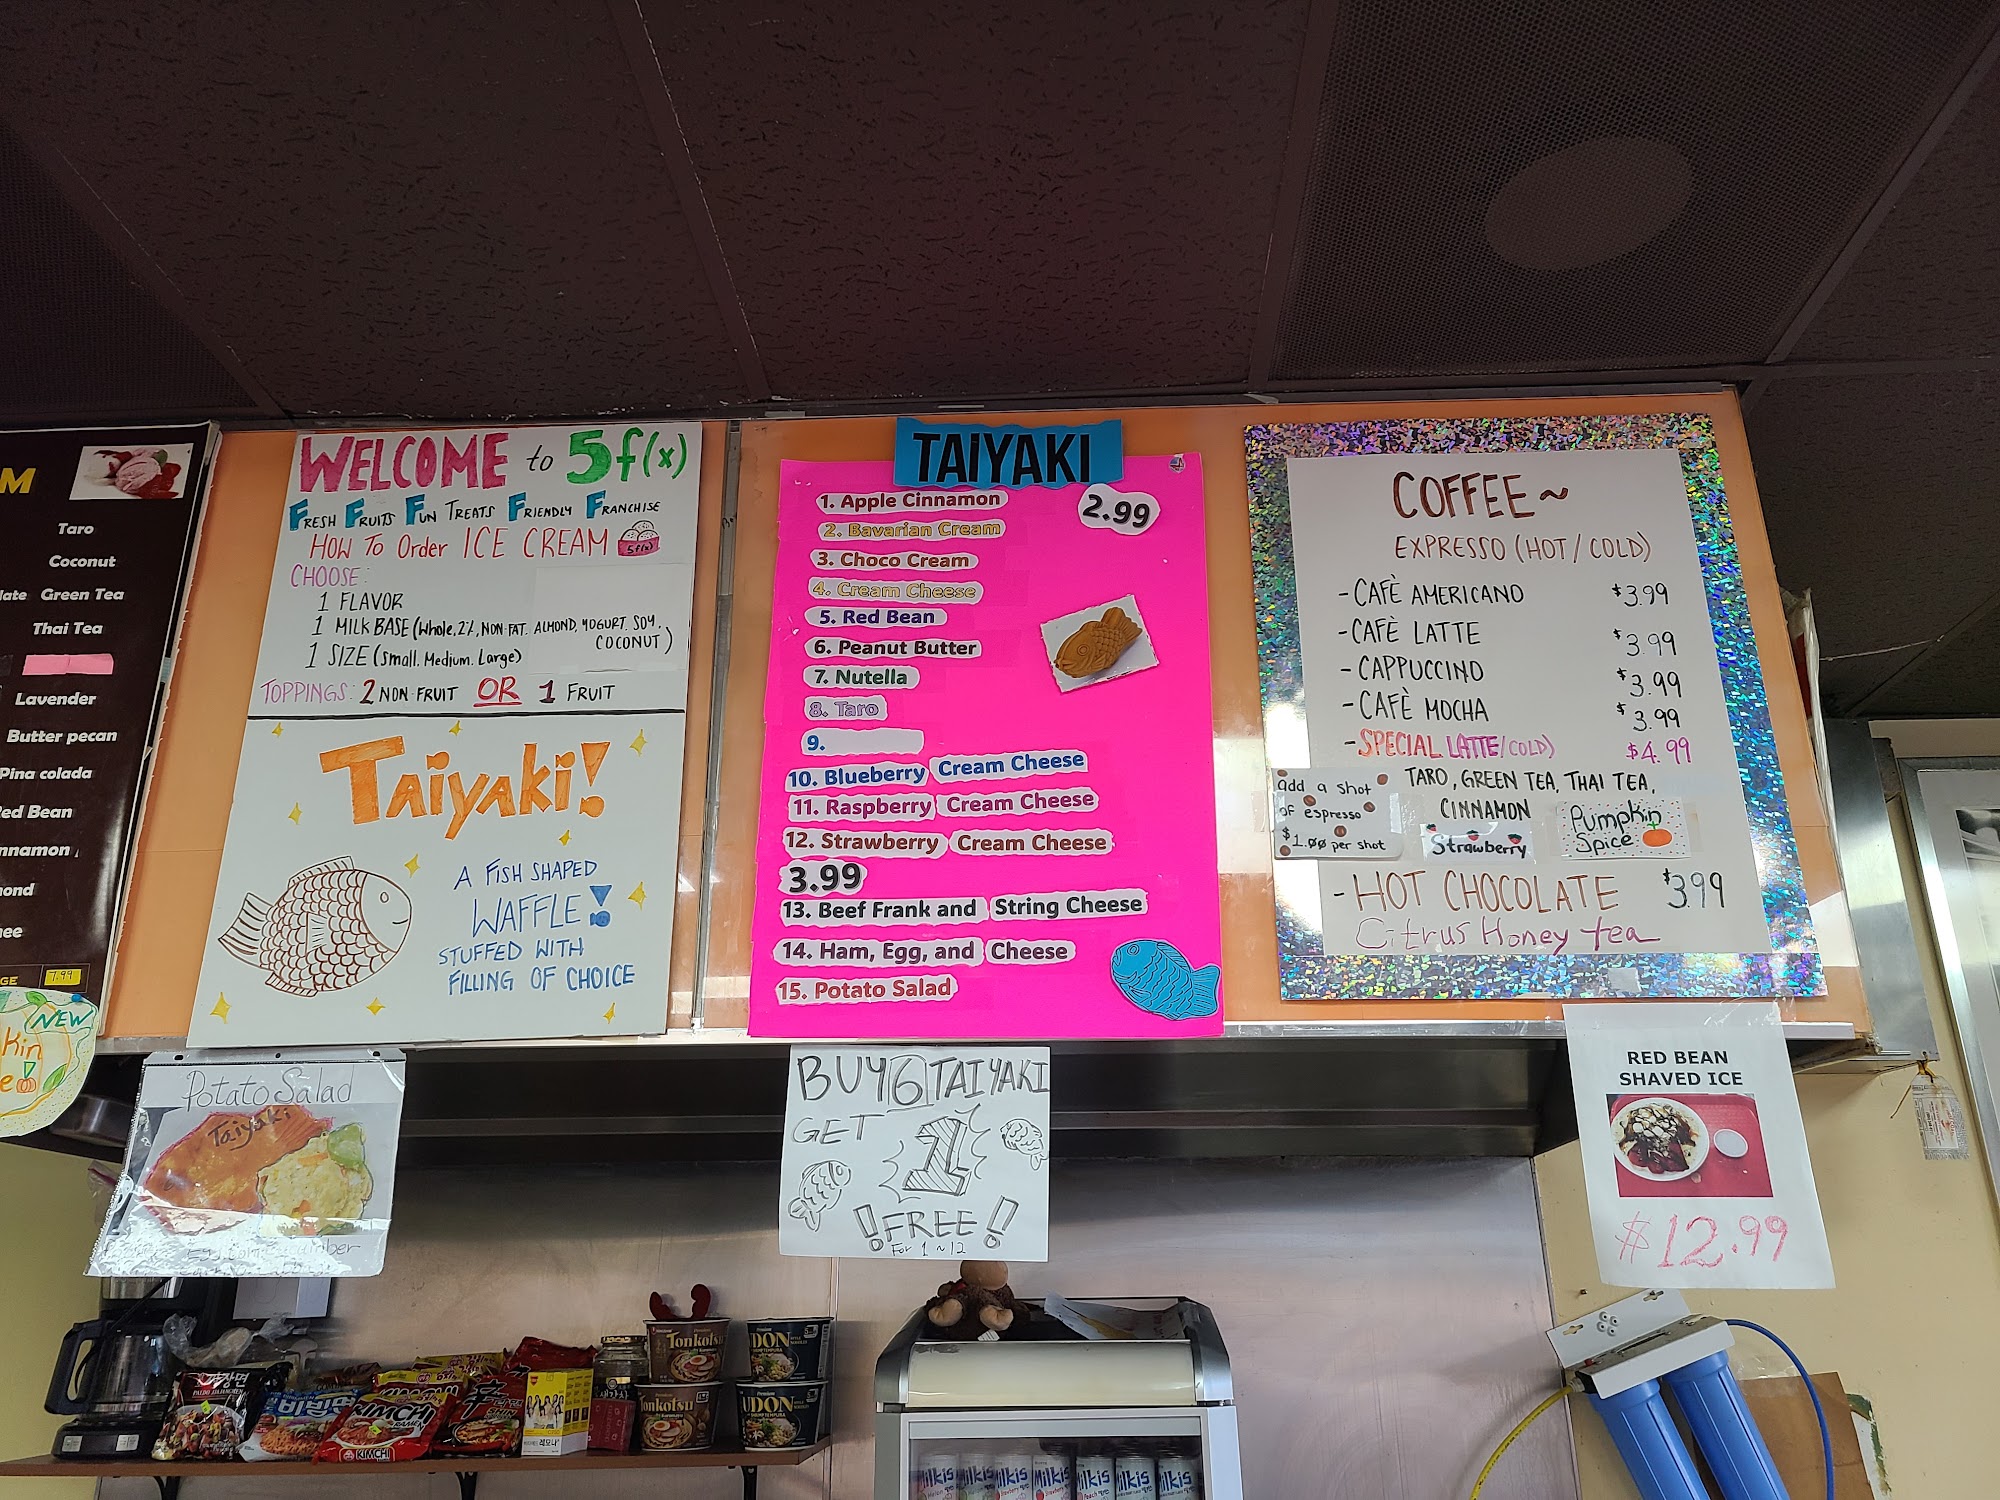 M
Taro
Coconut
late Green Tea
Thai Tea
Lavender
Butter pecan
Pina colada
ed Bean
nnamon
ond
ee
GE 7.99
NEW
kin
e!
WELCOME to 5f(x)
FRESH FRUITS FUN TREATS FRIENDLY FRANCHISE
HOW TO Order ICE CREAM
5f(x)
CHOOSE:
1 FLAVOR
1 MILK BASE (Whole, 2%, NON-FAT. ALMOND, YOGURT. SOY, COCONUT)
1 SIZE (Small. Medium. Large)
TOPPINGS: 2 NON FRUIT OR 1 FRUIT
TAiyaki!
A FISH SHAPED
WAFFLE!
STUFFED WITH
FILLING OF CHOICE
TAIYAKI
1. Apple Cinnamon 2.99
2. Bavarian Cream
3. Choco Cream
4. Cream Cheese
5. Red Bean
6. Peanut Butter
7. Nutella
8. Taro
9.
10. Blueberry Cream Cheese
11. Raspberry Cream Cheese
12. Strawberry Cream Cheese
3.99
13. Beef Frank and String Cheese
14. Ham, Egg, and Cheese
15. Potato Salad
COFFEE~
EXPRESSO (HOT / COLD)
- CAFÈ AMERICANO $3.99
- CAFÈ LATTE $3.99
- CAPPUCCINO $3.99
- CAFÈ MOCHA $3.99
- SPECIAL LATTE/COLD) $4.99
TARO, GREEN TEA, THAI TEA,
CINNAMON
add a shot
of espresso
$1.00 per shot
Strawberry
Pumpkin
Spice
- HOT CHOCOLATE $3.99
Citrus Honey tea
Potato Salad
Taiyaki
BUY 6 TAIYAKI
GET 1
!FREE!
For 1~12
RED BEAN
SHAVED ICE
$12.99
PALDO JJAJANGMEN
KIMCHI
RAMEN
KIMCHI
辛
SHIN
레모나
Tonkotsu
UDON
Tonkotsu
UDON
Milkis
Milkis
Milkis
Milkis
Milkis
Milkis
Milkis